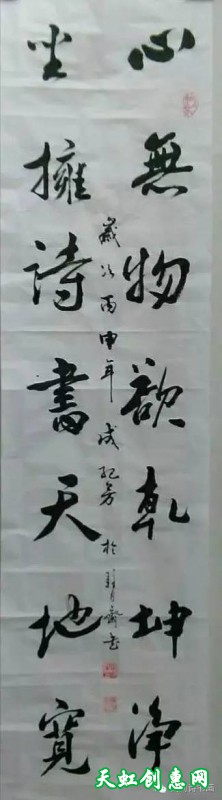 心無物欲乾坤净
坐擁詩書天地寬
歲次丙申年成纪芳於
天虹创惠网